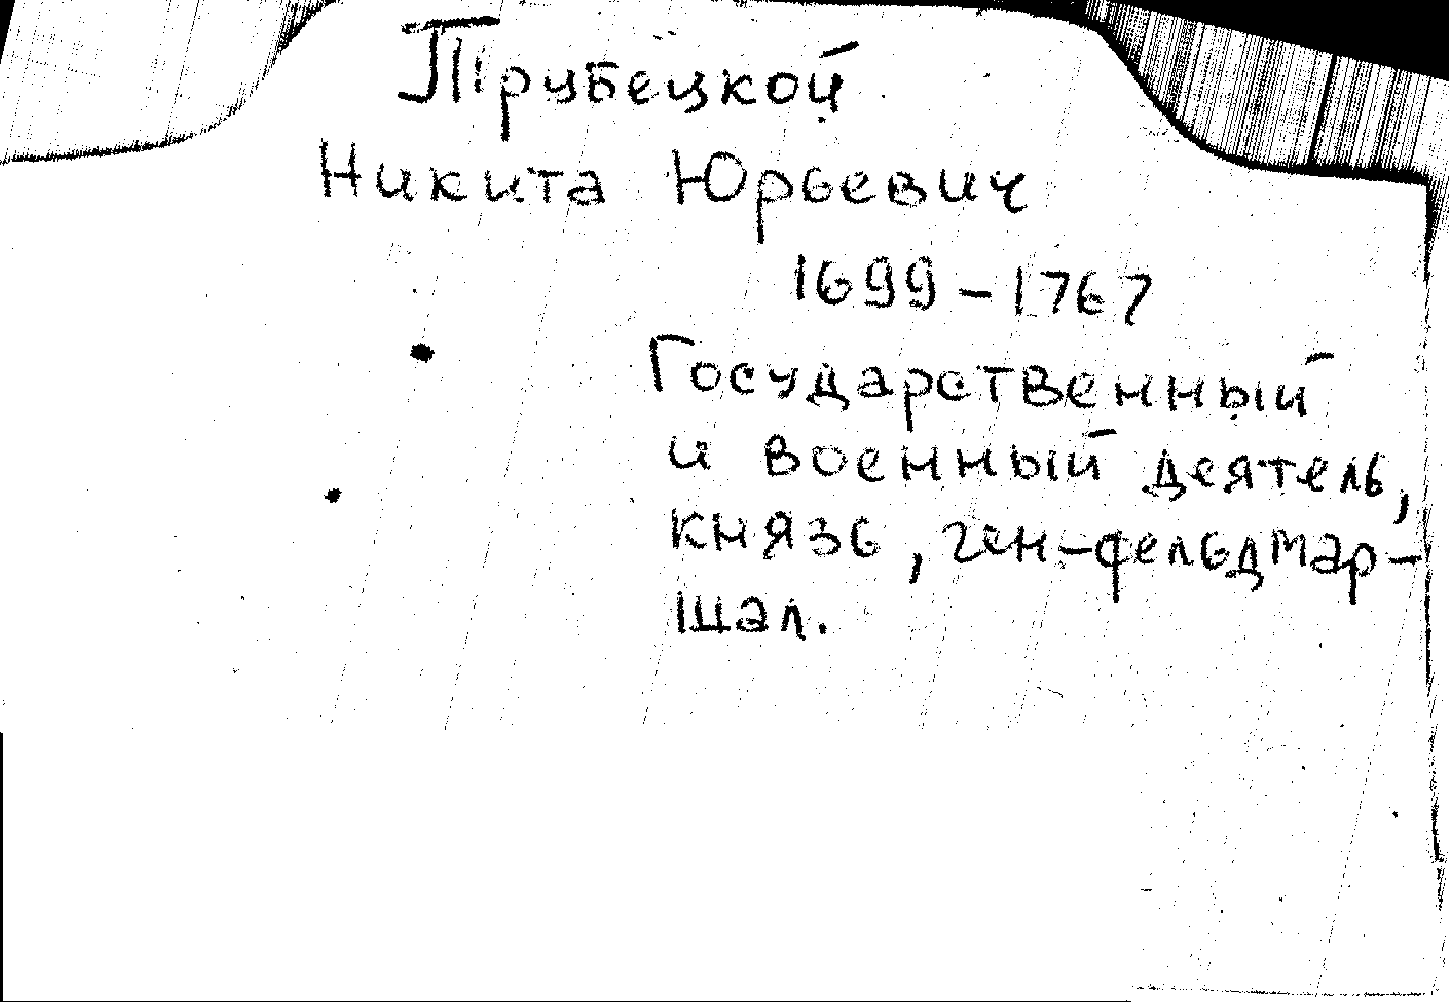 Трубецкой
Никита Юрьевич
1699-1767
Государственный
и военный деятель,
князь, ген-фельдмар-
шал.